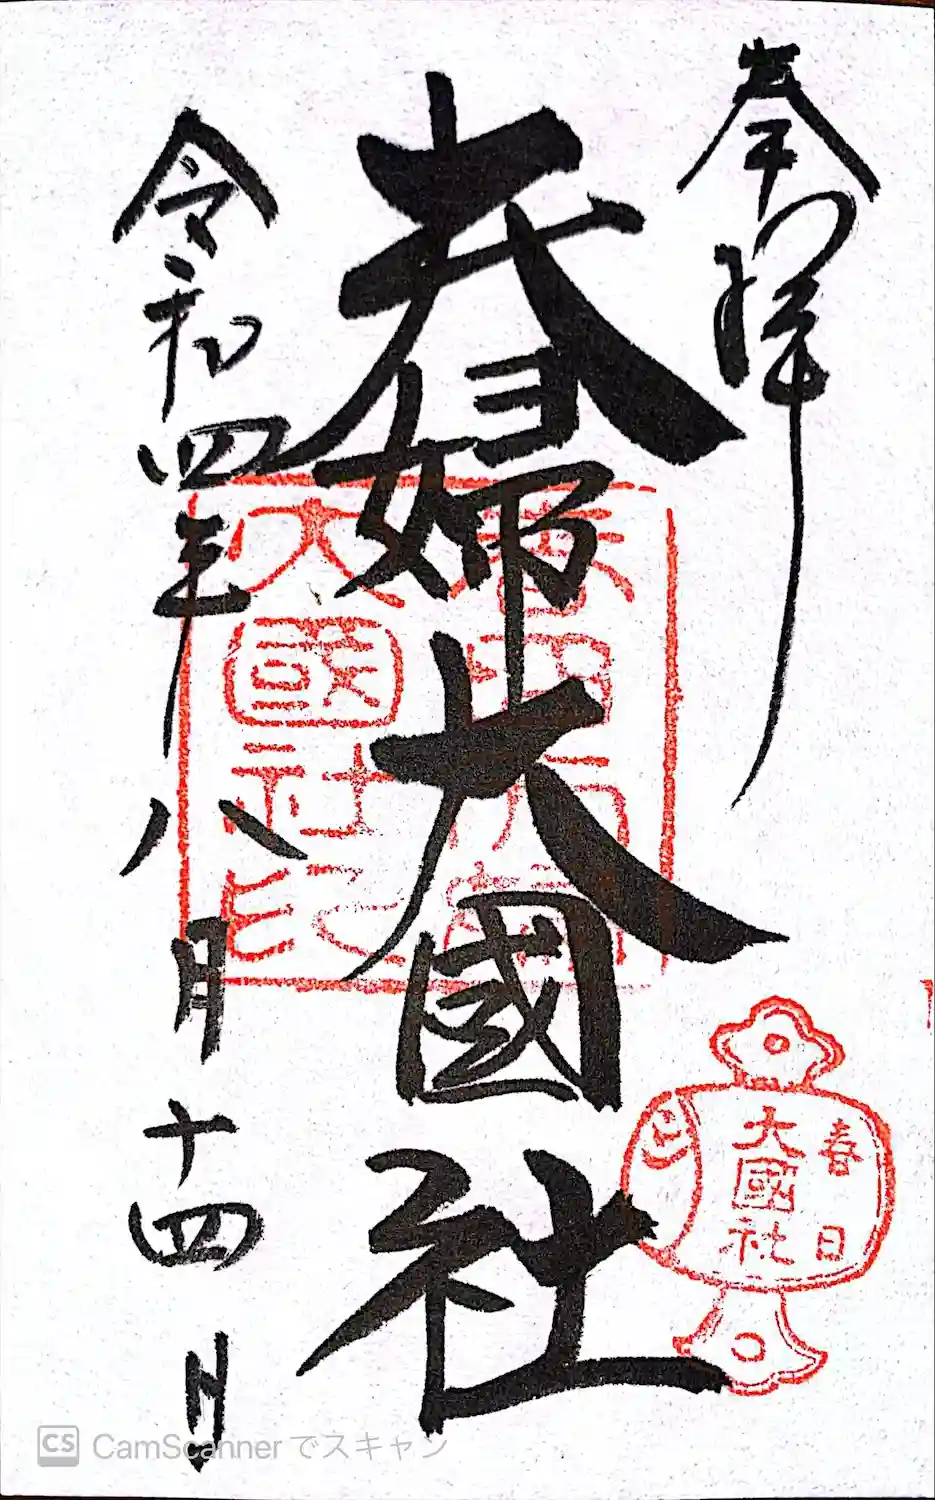 奉拝
夫婦大國社
令和四年八月十四日
大國社印
春日
大國社
CS CamScanner でスキャン